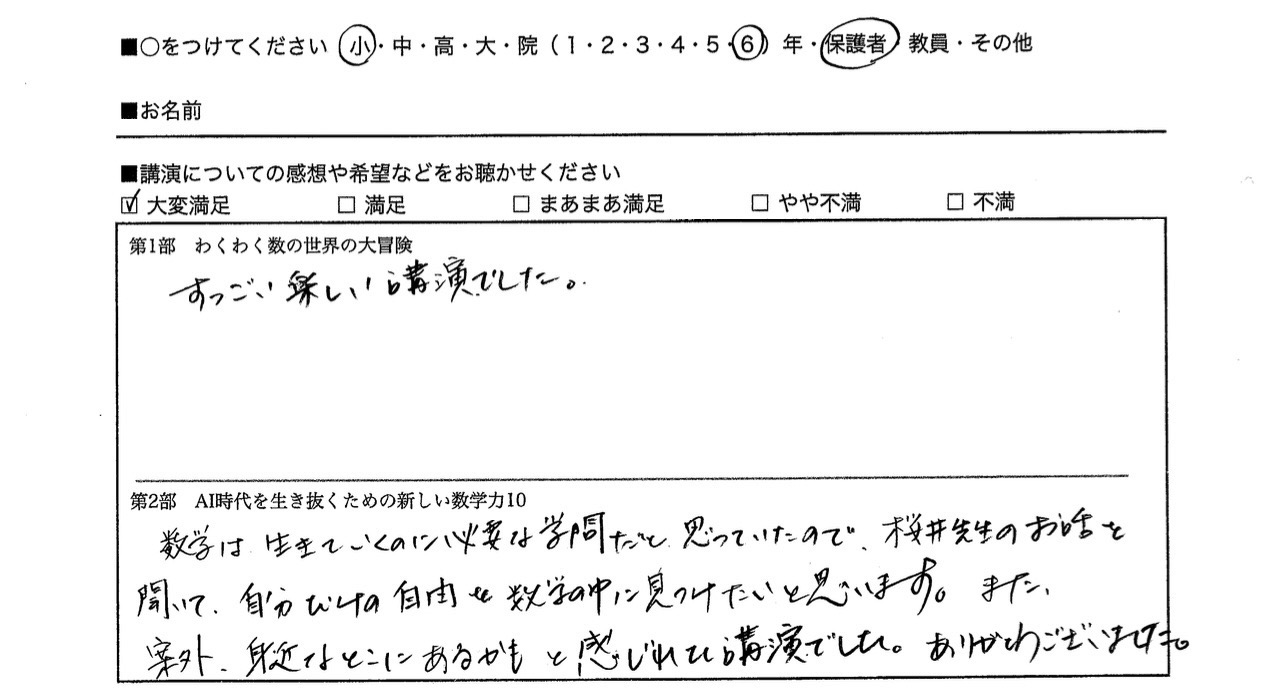 ■○をつけてください 小・中・高・大・院(1・2・3・4・5・6)年・保護者 教員・その他
■お名前
■講演についての感想や希望などをお聴かせください
☑ 大変満足 □ 満足 □ まあまあ満足 □ やや不満 □ 不満
第1部 わくわく数の世界の大冒険
すっごい楽しい講演でした。
第2部 AI時代を生き抜くための新しい数学力10
数学は生きていくのに必要な学問だと思っていたので、桜井先生のお話を
聞いて、自分だけの自由を数学の中に見つけたいと思います。また、
案外、身近なとこにあるかもと感じれた講演でした。ありがとうございました。